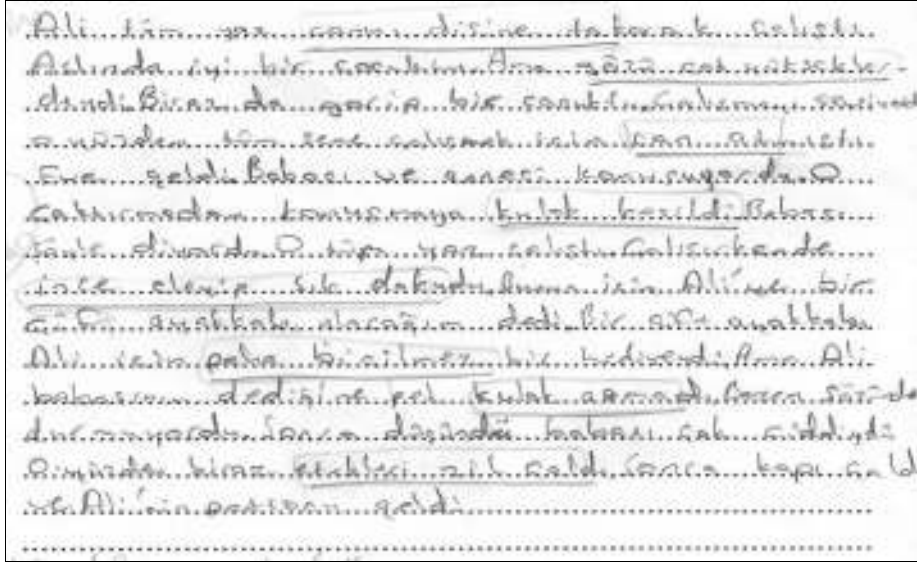 Ali tüm yaz canını dişine takarak çalıştı.
Aslında iyi bir çocuktu. Ama gözü çok yüksekler-
dendi. Biraz da garip bir çocuktu. Çalışmayı
o yüzden tüm sene çalışmak için can atmıştı.
Eve geldi. Babası ve annesi konuşuyordu. O
çaktırmadan konuşmaya kulak kesildi. Babası
şöyle diyordu. O tüm yaz çalıştı. Çalışırkende
ince eleyip sık dokudu. Bunun için Ali'ye bir
çift ayakkabı alacağım dedi. Bir çift ayakkabı
Ali için paha biçilmez bir hediyeydi. Ama Ali
babasının dediğine pek kulak asmadı. Bazen sözünde
durmuyordu. Sonra düşündü babası çok ciddiydi
O yüzden biraz etekleri zil çaldı. Sonra kapı çaldı
ve Ali'nin geldi.